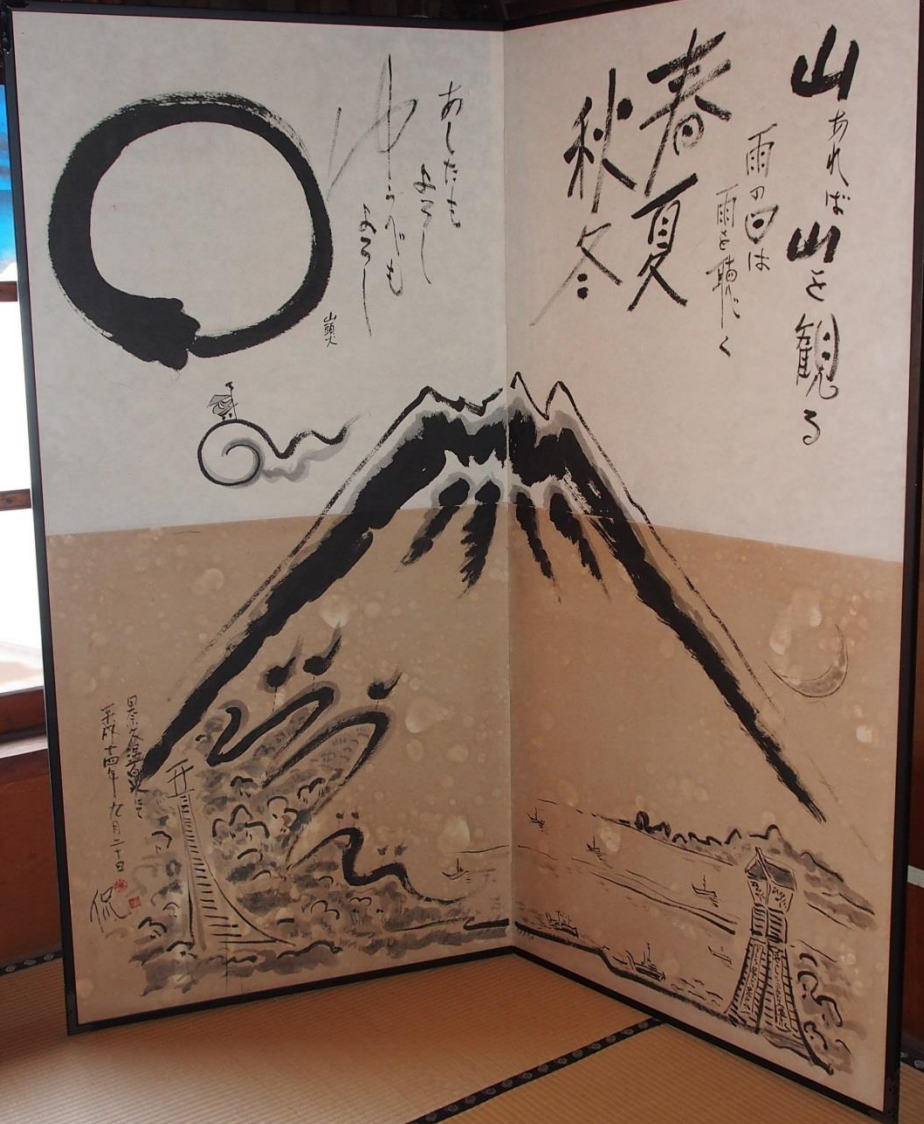 山あれば山を観る
雨の日は
雨を聴く
春夏
秋冬
あしたも
よろし
ゆうべも
よろし
山頭火
平成十四年九月二十日
侃